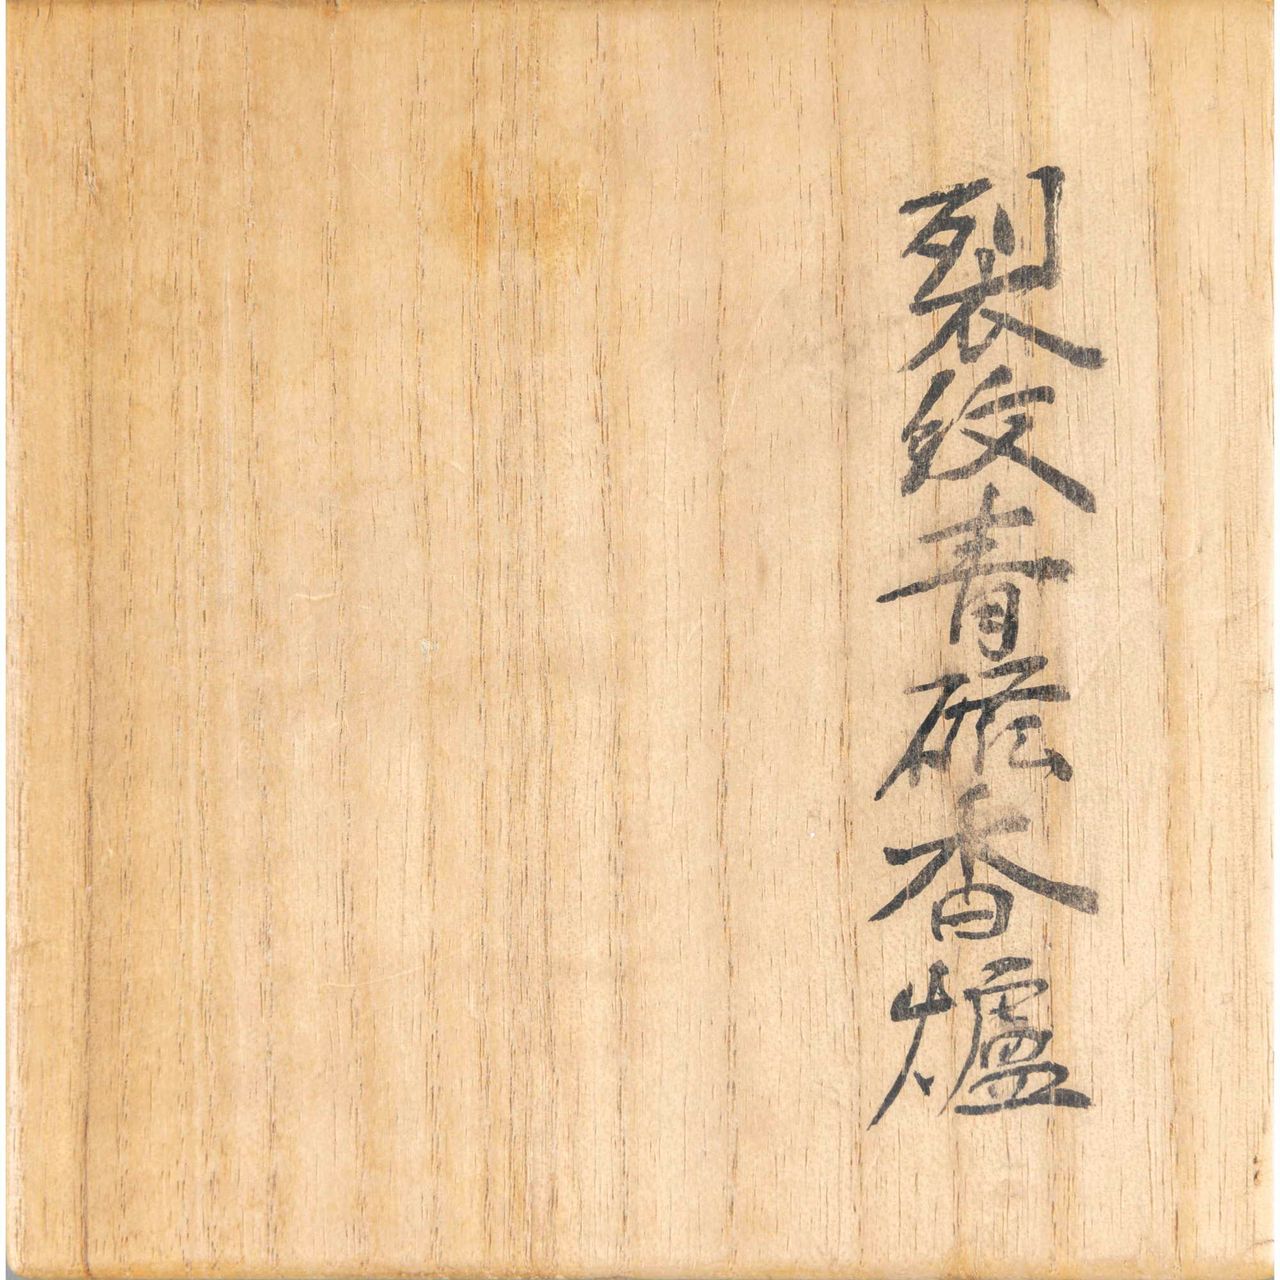 裂紋青磁香爐